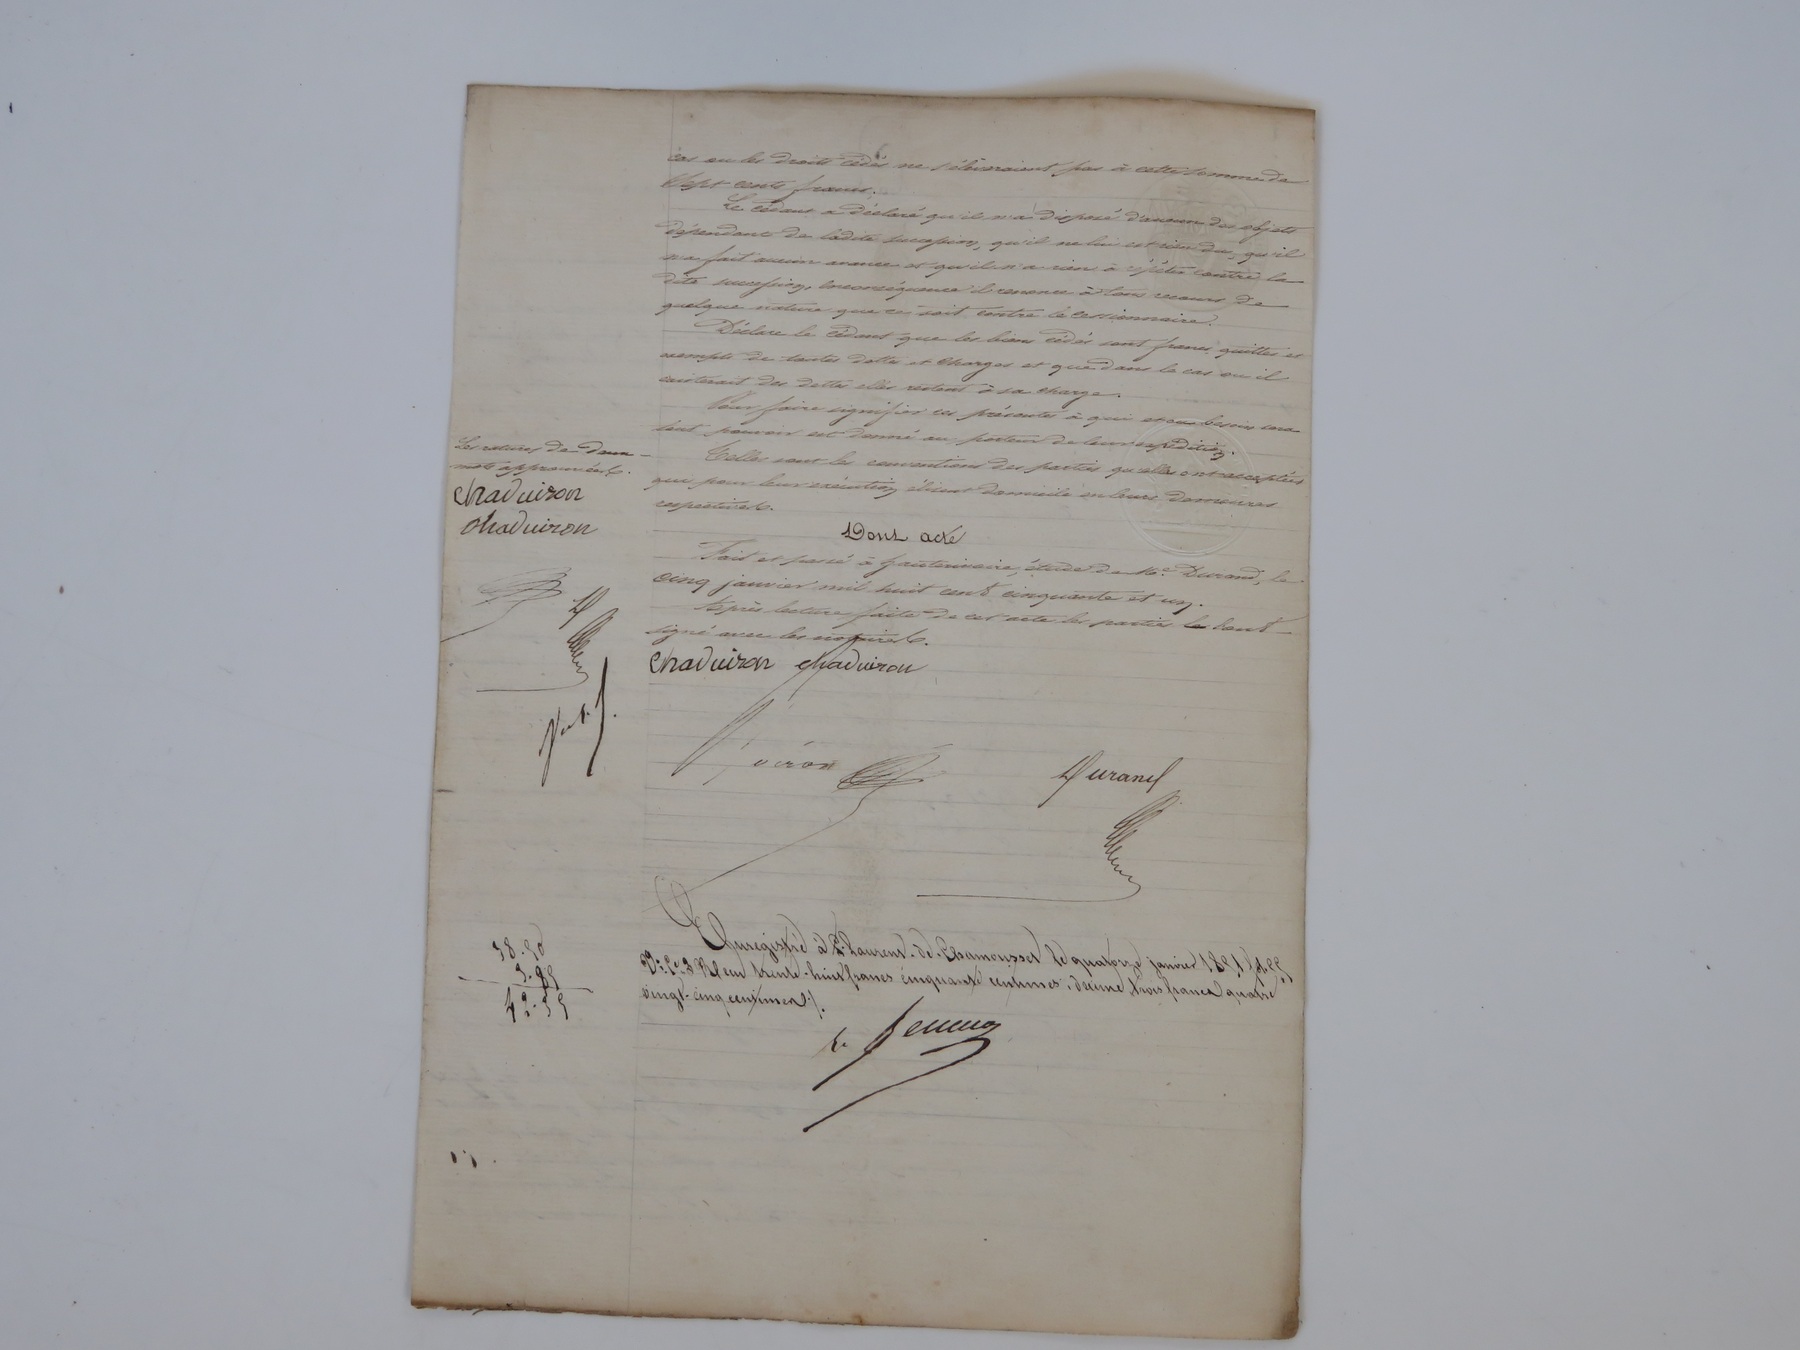 cas ou les droits cédés ne s'élèveraient pas à cette somme de
Sept cents francs.
Le cédant a déclaré qu'il n'a disposé d'aucun des objets
dépendants de ladite succession, qu'il ne lui est rien du, qu'il
n'a fait aucun avance et qu'il n'a rien à répéter contre la
dite succession, en conséquence il renonce à tous recours de
quelque nature que ce soit contre le cessionnaire.
Déclare le cédant que les biens cédés sont francs quittes et
exempts de toutes dettes et charges et que dans le cas ou il
existerait des dettes elles restent à sa charge.
Pour faire signifier ces présentes à qui et ou besoin sera
tout pouvoir est donné au porteur de leur expédition.
Telles sont les conventions des parties qu'elles ont acceptées
qui pour leur exécution élisent domicile en leurs demeures
respectives.
Dont acte
Fait et passé à étude de Me Durand, le
cinq janvier mil huit cent cinquante et un.
Après lecture faite de cet acte les parties le ont
signé avec les notaires.
Les ratures de deux
mots approuvées.
Chaduizon
Chaduizon
Chaduizon Chaduizon
Voiron
Durand
Enregistré à St Laurent-de-Chamousset le quatorze janvier 1851
trente-huit francs cinquante centimes, décime trois francs quatre
vingt-cinq centimes
38.50
3.85
42.35